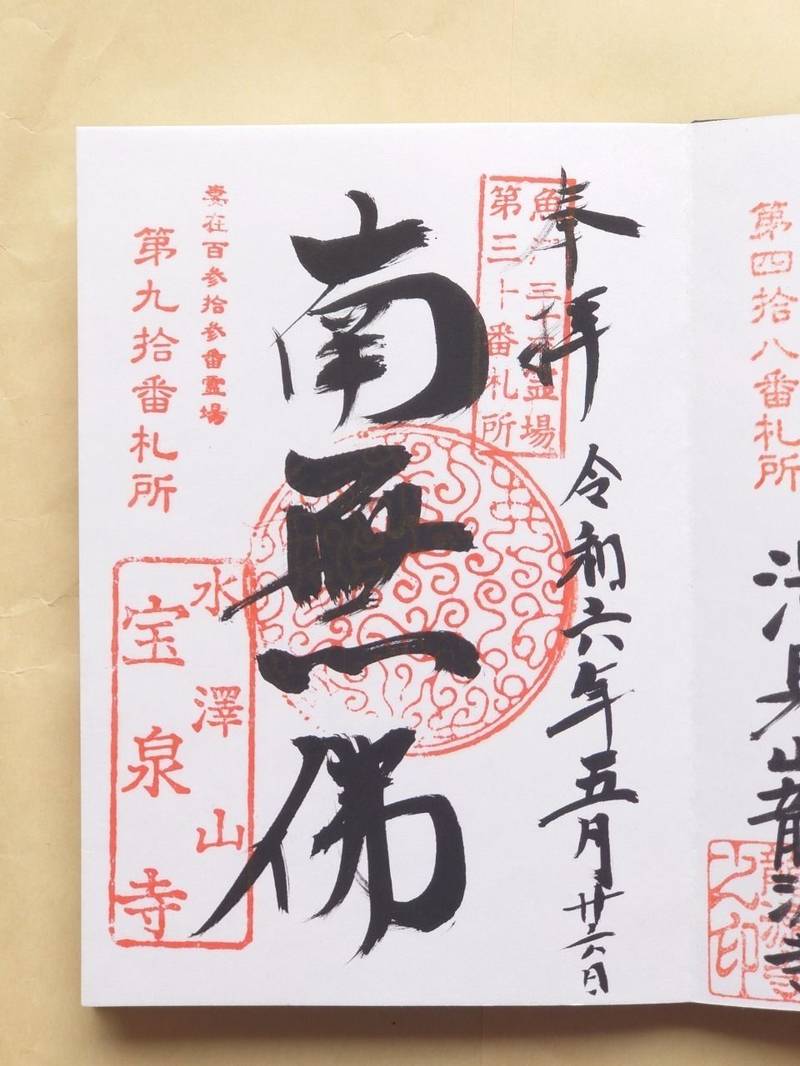 第四拾八番札所
山龍
之印
奉拝
令和六年五月廿六日
魚 三 霊場
第三十番札所
南無佛
在百参拾参番霊場
第九拾番札所
水澤山
宝泉寺